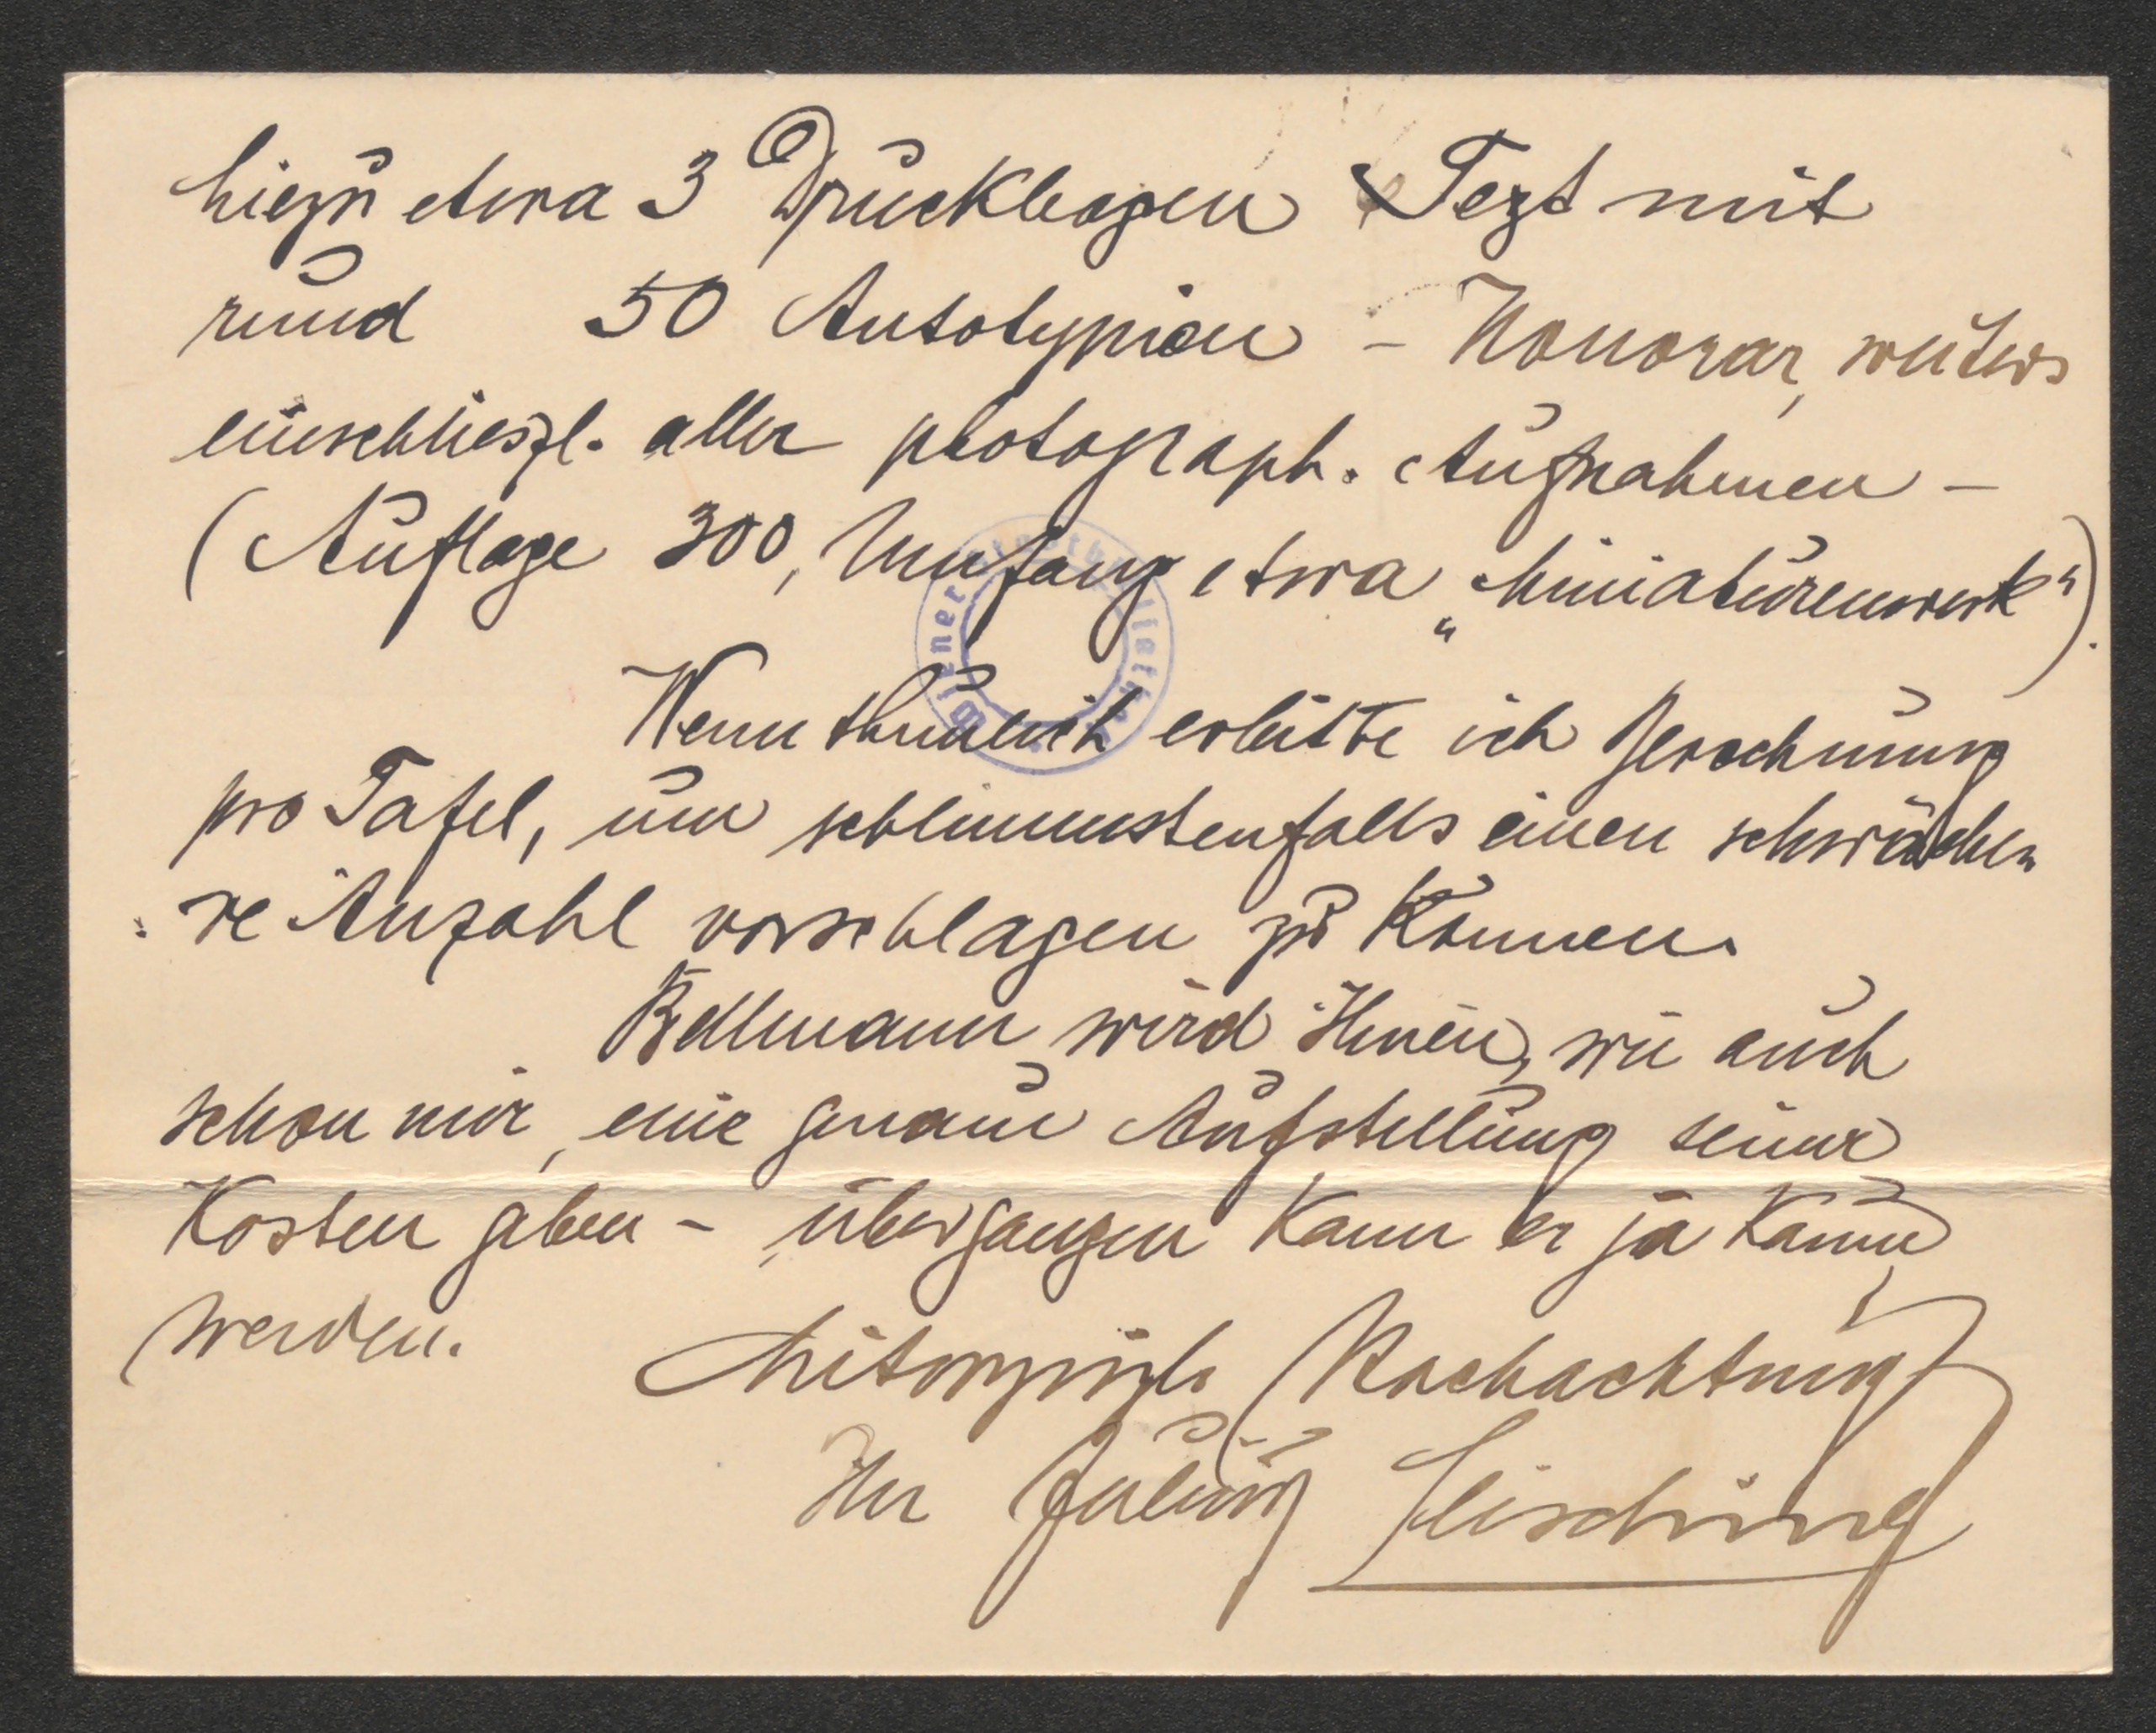 hiezu etwa 3 Druckbogen Text mit
rund 50 Autotypien – Honorar, weiters
einschlieszl. aller photograph. Aufnahmen –
(Auflage 300, Umfang etwa „Miniaturenwerk“).
Wenn thunlich erbitte ich Berechnung
pro Tafel, um schlimmstenfalls einen schwäche„
re Anzahl vorschlagen zu können.
Bellmann wird Ihnen, wie auch
schon mir, eine genaue Aufstellung seiner
Kosten geben – übergangen kann er ja kaum
werden.
Hochachtung
Ihr Julius Leisching